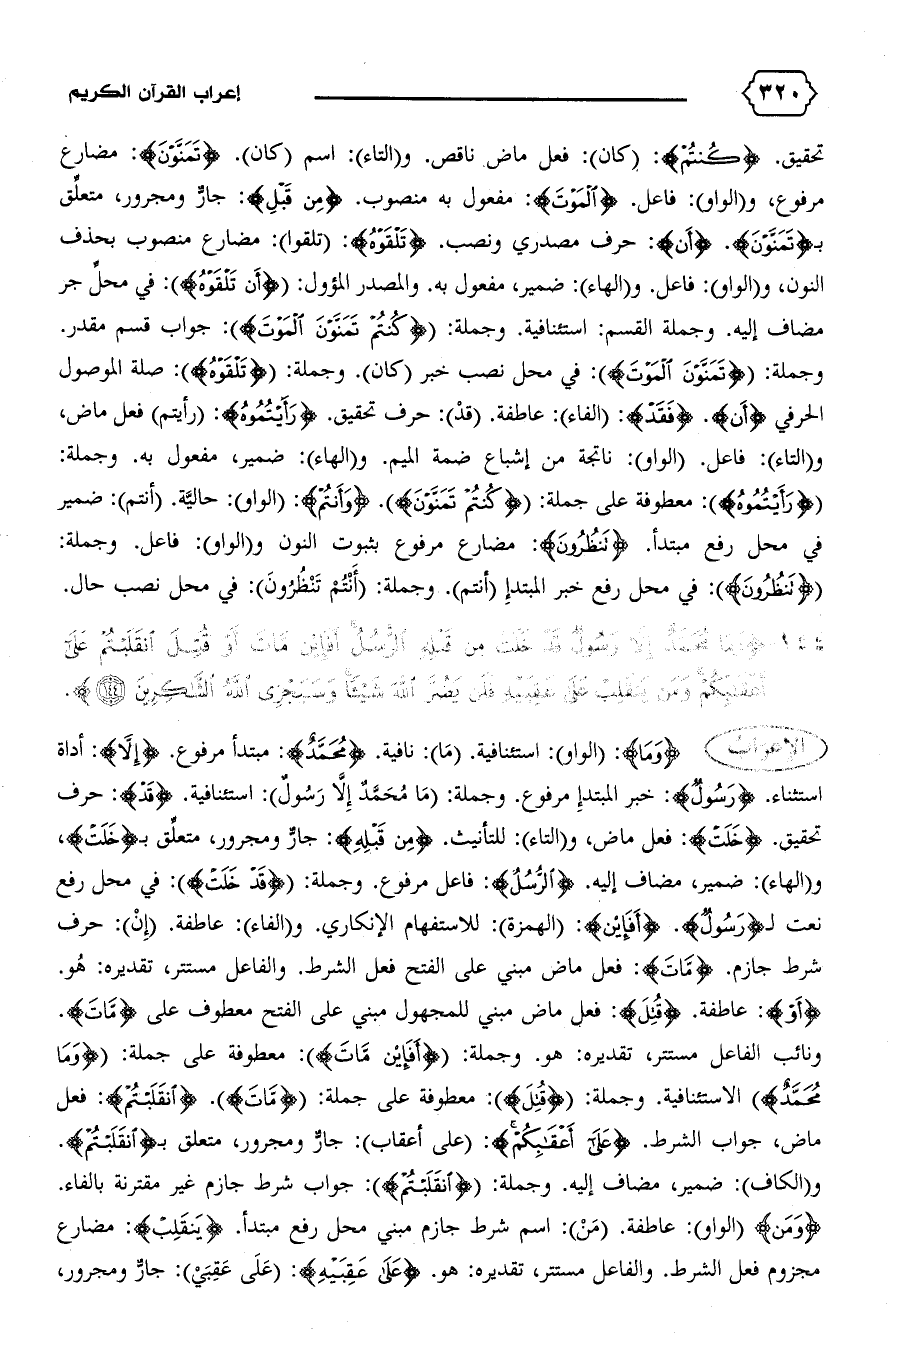 ٣٢٠ إعراب القرآن الكريم
تحقيق. ﴿كُنتُمْ﴾: (كان): فعل ماض ناقص. و(التاء): اسم (كان). ﴿تَمَنَّوْنَ﴾: مضارع
مرفوع، و(الواو): فاعل. ﴿ٱلْمَوْتَ﴾: مفعول به منصوب. ﴿مِن قَبْلِ﴾: جارٌ ومجرور، متعلِّق
بـ﴿تَمَنَّوْنَ﴾. ﴿أَن﴾: حرف مصدري ونصب. ﴿تَلْقَوْهُ﴾: (تلقوا): مضارع منصوب بحذف
النون، و(الواو): فاعل. و(الهاء): ضمير، مفعول به. والمصدر المؤول: (﴿أَن تَلْقَوْهُ﴾): في محلِّ جر
مضاف إليه. وجملة القسم: استئنافية. وجملة: (﴿كُنتُمْ تَمَنَّوْنَ ٱلْمَوْتَ﴾): جواب قسم مقدر.
وجملة: (﴿تَمَنَّوْنَ ٱلْمَوْتَ﴾): في محل نصب خبر (كان). وجملة: (﴿تَلْقَوْهُ﴾): صلة الموصول
الحرفي ﴿أَن﴾. ﴿فَقَدْ﴾: (الفاء): عاطفة. (قدْ): حرف تحقيق. ﴿رَأَيْتُمُوهُ﴾: (رأيتم) فعل ماض،
و(التاء): فاعل. (الواو): ناتجة من إشباع ضمة الميم. و(الهاء): ضمير، مفعول به. وجملة:
(﴿رَأَيْتُمُوهُ﴾): معطوفة على جملة: (﴿كُنتُمْ تَمَنَّوْنَ﴾). ﴿وَأَنتُمْ﴾: (الواو): حاليَّة. (أنتم): ضمير
في محل رفع مبتدأ. ﴿نَنظُرُونَ﴾: مضارع مرفوع بثبوت النون و(الواو): فاعل. وجملة:
(﴿نَنظُرُونَ﴾): في محل رفع خبر المبتدإ (أنتم). وجملة: (أَنْتُمْ تَنْظُرُونَ): في محل نصب حال.
١٤٤ ﴿وَمَا مُحَمَّدٌ إِلَّا رَسُولٌ قَدْ خَلَتْ مِن قَبْلِهِ ٱلرُّسُلُ أَفَإِي۟ن مَّاتَ أَوْ قُتِلَ ٱنقَلَبْتُمْ عَلَىٰٓ
أَعْقَٰبِكُمْ وَمَن يَنقَلِبْ عَلَىٰ عَقِبَيْهِ فَلَن يَضُرَّ ٱللَّهَ شَيْـًٔا وَسَيَجْزِى ٱللَّهُ ٱلشَّٰكِرِينَ ﴿١٤٤﴾﴾.
الإعراب ﴿وَمَا﴾: (الواو): استئنافية. (مَا): نافية. ﴿مُحَمَّدٌ﴾: مبتدأ مرفوع. ﴿إِلَّا﴾: أداة
استثناء. ﴿رَسُولٌ﴾: خبر المبتدإ مرفوع. وجملة: (مَا مُحَمَّدٌ إِلَّا رَسُولٌ): استئنافية. ﴿قَدْ﴾: حرف
تحقيق. ﴿خَلَتْ﴾: فعل ماض، و(التاء): للتأنيث. ﴿مِن قَبْلِهِ﴾: جارٌ ومجرور، متعلِّق بـ﴿خَلَتْ﴾،
و(الهاء): ضمير، مضاف إليه. ﴿ٱلرُّسُلُ﴾: فاعل مرفوع. وجملة: (﴿قَدْ خَلَتْ﴾): في محل رفع
نعت لـ﴿رَسُولٌ﴾. ﴿أَفَإِي۟ن﴾: (الهمزة): للاستفهام الإنكاري. و(الفاء): عاطفة. (إِنْ): حرف
شرط جازم. ﴿مَّاتَ﴾: فعل ماض مبني على الفتح فعل الشرط. والفاعل مستتر، تقديره: هُو.
﴿أَوْ﴾: عاطفة. ﴿قُتِلَ﴾: فعل ماض مبني للمجهول مبني على الفتح معطوف على ﴿مَّاتَ﴾.
ونائب الفاعل مستتر، تقديره: هو. وجملة: (﴿أَفَإِي۟ن مَّاتَ﴾): معطوفة على جملة: (﴿وَمَا
مُحَمَّدٌ﴾) الاستئنافية. وجملة: (﴿قُتِلَ﴾): معطوفة على جملة: (﴿مَّاتَ﴾). ﴿ٱنقَلَبْتُمْ﴾: فعل
ماض، جواب الشرط. ﴿عَلَىٰٓ أَعْقَٰبِكُمْ﴾: (على أعقاب): جارٌ ومجرور، متعلق بـ﴿ٱنقَلَبْتُمْ﴾.
و(الكاف): ضمير، مضاف إليه. وجملة: (﴿ٱنقَلَبْتُمْ﴾): جواب شرط جازم غير مقترنة بالفاء.
﴿وَمَن﴾ (الواو): عاطفة. (مَنْ): اسم شرط جازم مبني محل رفع مبتدأ. ﴿يَنقَلِبْ﴾: مضارع
مجزوم فعل الشرط. والفاعل مستتر، تقديره: هو. ﴿عَلَىٰ عَقِبَيْهِ﴾: (عَلَى عَقِبَيْ): جارٌ ومجرور،